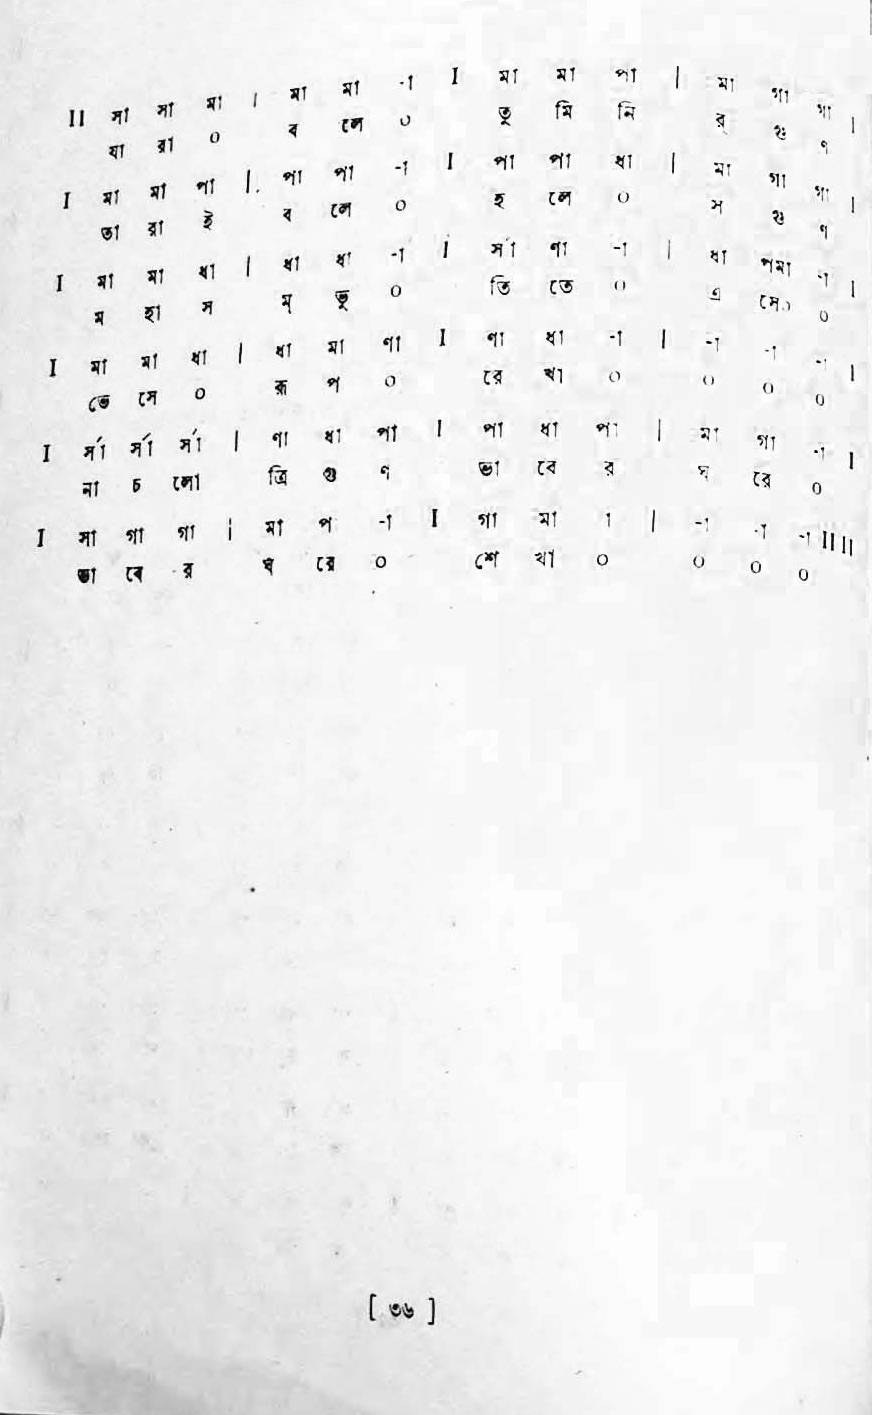 II সা সা মা | মা মা -া I মা মা পা | মা গা গা I
যা রা ০ ব লে ০ তু মি নি র্ গু ণ
I মা মা পা | পা পা -া I পা পা ধা | মা গা গা I
তা রা ই ব লে ০ হ লে ০ স গু ণ
I মা মা ধা | ধা ধা -া I র্সা ণা -া | ধা পমা -া I
ম হা স ম্ ভূ ০ তি তে ০ এ সে০ ০
I মা মা ধা | ধা মা ণা I ণা ধা -া | -া -া -া I
ভে সে ০ রূ প ০ রে খা ০ ০ ০ ০
I র্সা র্সা র্সা | ণা ধা পা I পা ধা পা | মা গা -া I
না চ লো ত্রি গু ণ ভা বে র ঘ রে ০
I সা গা গা | মা প -া I গা মা া | -া -া -া II II
ভা বে র ঘ রে ০ শে খা ০ ০ ০ ০
[ ৩৬ ]